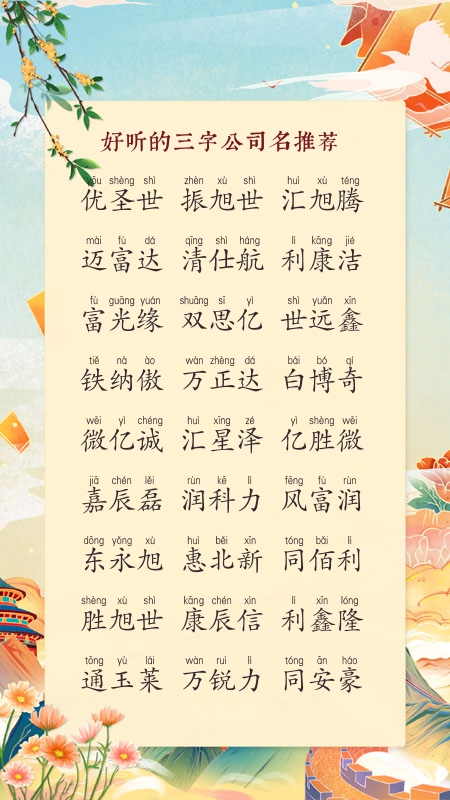 好听的三字公司名推荐
yōu shèng shì zhèn xù shì huì xù téng
优圣世 振旭世 汇旭腾
mài fù dá qīng shì háng lì kāng jié
迈富达 清仕航 利康洁
fù guāng yuán shuāng sī yì shì yuǎn xīn
富光缘 双思亿 世远鑫
tiě nà ào wàn zhèng dá bái bó qí
铁纳傲 万正达 白博奇
wēi yì chéng huì xīng zé yì shèng wēi
微亿诚 汇星泽 亿胜微
jiā chén lěi rùn kē lì fēng fù rùn
嘉辰磊 润科力 风富润
dōng yǒng xù huì běi xīn tóng bǎi lì
东永旭 惠北新 同佰利
shèng xù shì kāng chén xìn lì xīn lóng
胜旭世 康辰信 利鑫隆
tōng yù lái wàn ruì lì tóng ān háo
通玉莱 万锐力 同安豪